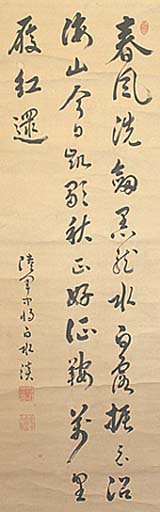 春風洗劔黒龍水白露振衣沿
海山今日凱歌秋正好征鞍萬里
履紅還
陸軍中将白水淡